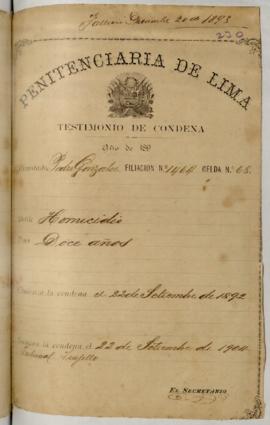 Diciembre 20 de 1893
230
PENITENCIARIA DE LIMA
TESTIMONIO DE CONDENA
Año de 189
Pedro Gonzales FILIACION N.º 1464 CELDA N.º 65.
Homicidio
Doce años
la condena el 22 de Setiembre de 1892
la condena el 22 de Setiembre de 1904
Tribunal Trujillo
EL SECRETARIO